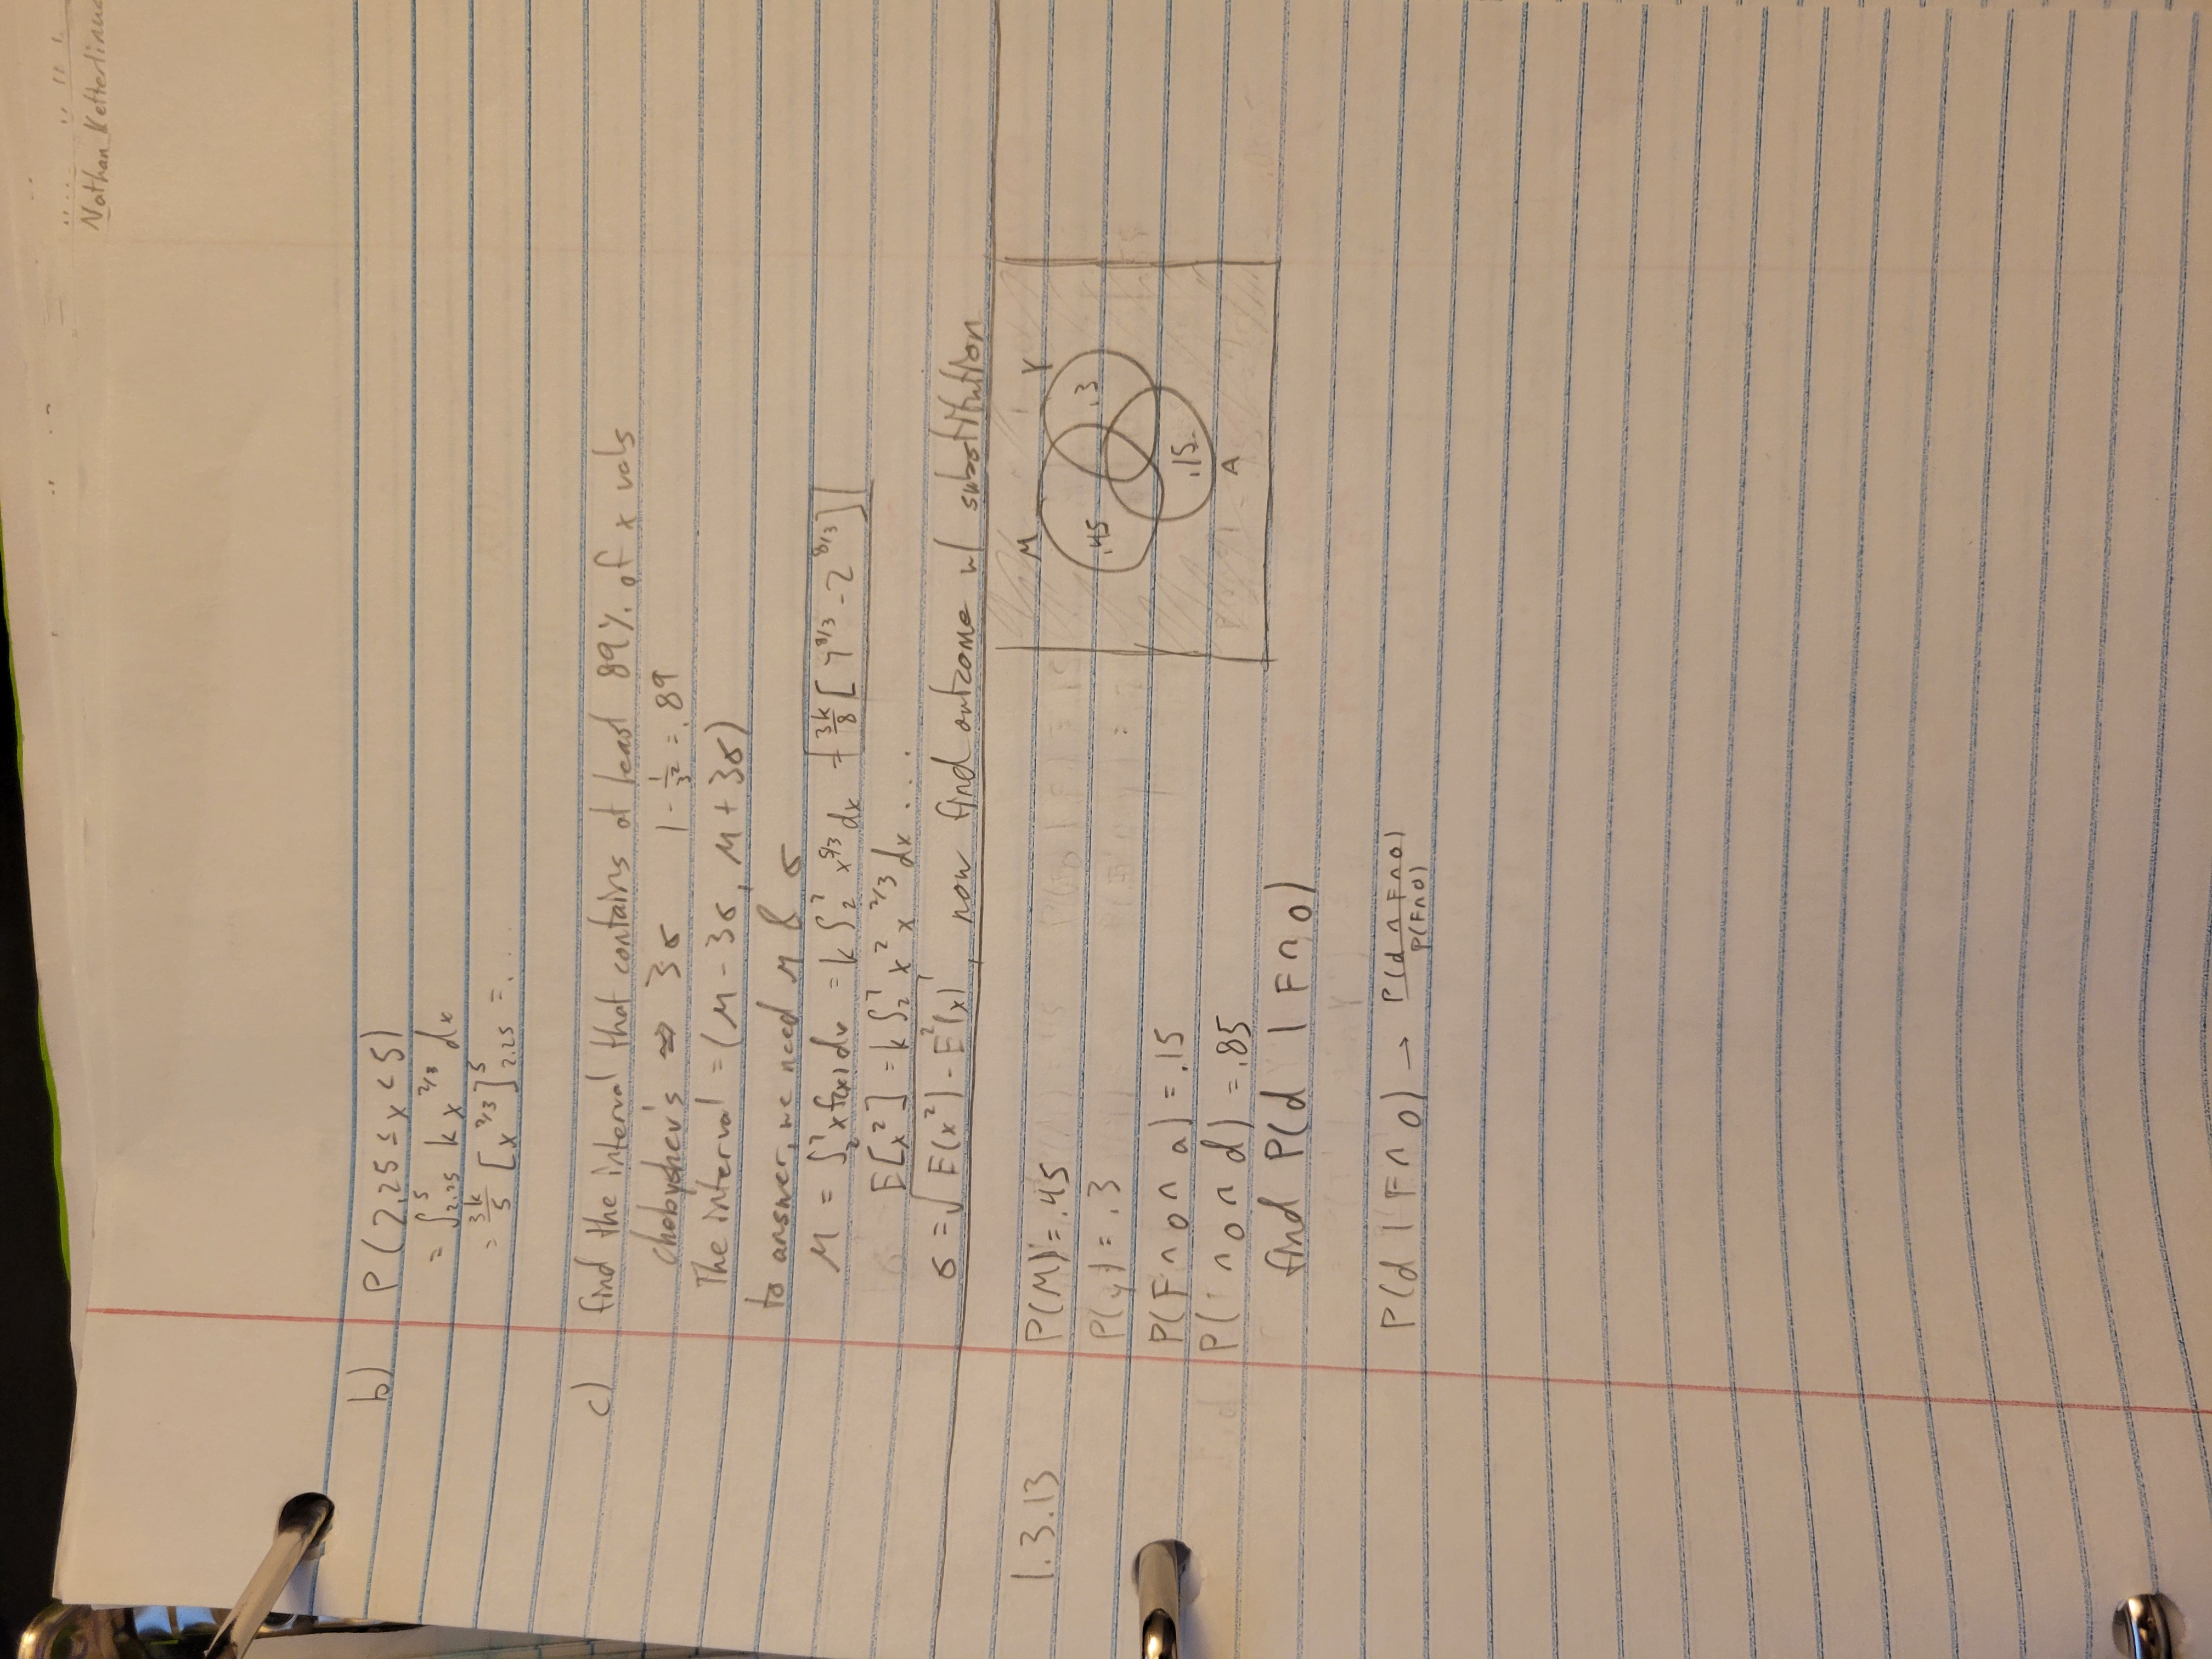 Nathan Ketterlinus
b) P(2.25 ≤ x < 5)
= ∫_{2.25}^{5} k x^{2/3} dx
= 3k/5 [x^{2/3}]_{2.25}^{5} = ...
c) find the interval that contains at least 89% of x vals
chebyshev's ⇒ 3σ 1 - 1/3² = .89
The interval = (μ - 3σ, μ + 3σ)
to answer, we need μ & σ
μ = ∫_2^7 x f(x) dx = k ∫_2^7 x^{5/3} dx = 3k/8 [7^{8/3} - 2^{8/3}]
E[x²] = k ∫_2^7 x² x^{2/3} dx ...
σ = √(E(x²) - E²(x)), now find outcome w/ substitution
1.3.13 P(M) = .45
P(y) = .3
P(F ∩ o ∩ a) = .15
P( ∩ o ∩ d) = .85
find P(d | F ∩ o)
P(d | F ∩ o) → P(d ∩ F ∩ o) / P(F ∩ o)
M Y
.45 .3
.15
A